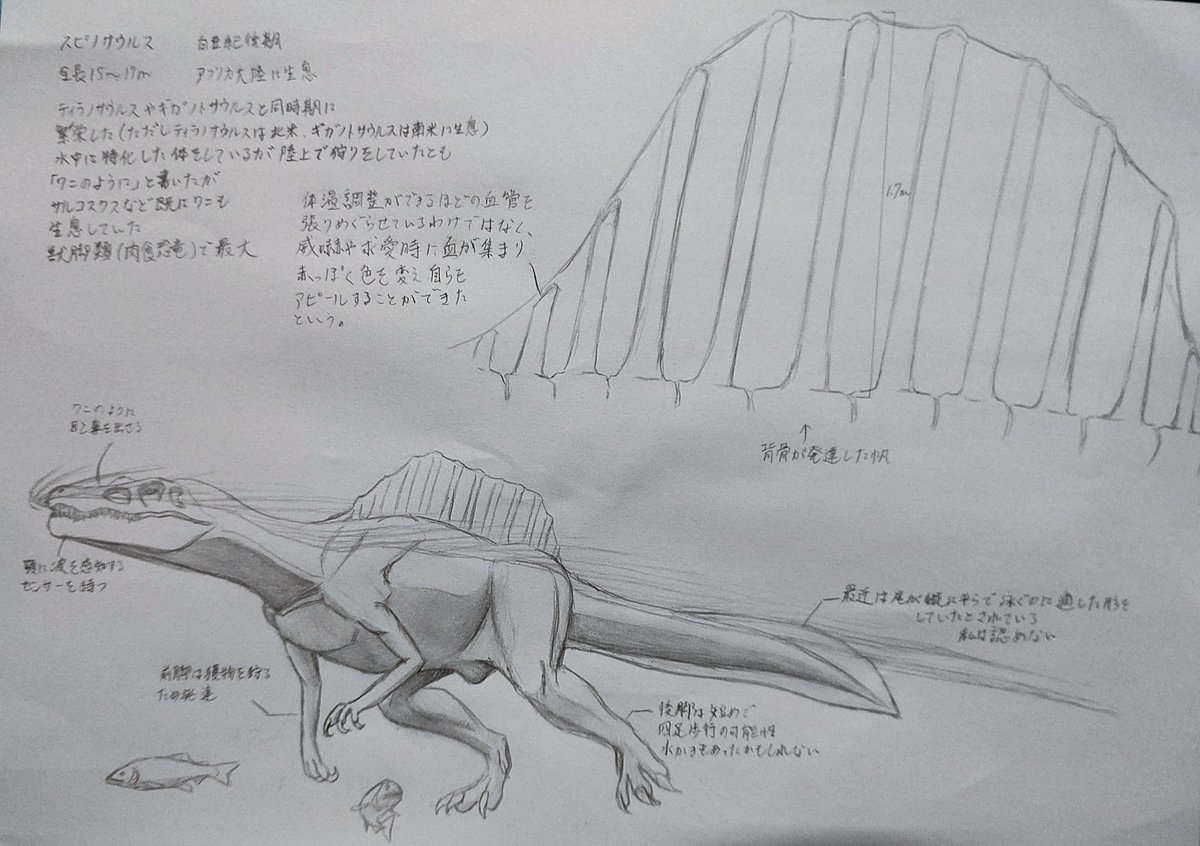 スピノサウルス 白亜紀後期
全長15〜17m アフリカ大陸に生息
ティラノサウルスやギガノトサウルスと同時期に
繁栄した(ただしティラノサウルスは北米、ギガノトサウルスは南米に生息)
水中に特化した体をしているが陸上で狩りをしていたとも
「ワニのように」と書いたが
サルコスクスなど既にワニも
生息していた
獣脚類(肉食恐竜)で最大
体温調整ができるほどの血管を
張りめぐらせているわけではなく、
威嚇や求愛時に血が集まり
赤っぽく色を変え自らを
アピールすることができた
という。
1.7m
↑
背骨が発達した帆
ワニのように
目と鼻を出せる
顎に波を感知する
センサーを持つ
最近は尾が縦に平らで泳ぐのに適した形を
していたとされている
私は認めない
前脚は獲物を狩る
ため発達
後脚は短めで
四足歩行の可能性
水かきもあったかもしれない